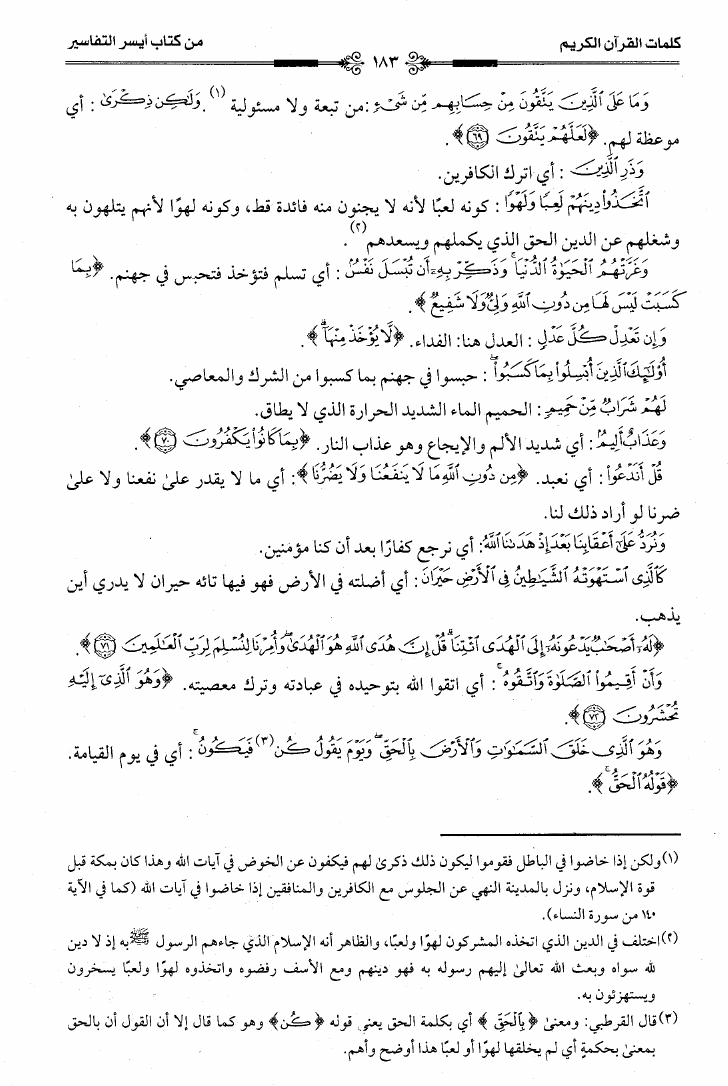 كلمات القرآن الكريم من كتاب أيسر التفاسير
١٨٣
وَمَا عَلَى ٱلَّذِينَ يَتَّقُونَ مِنْ حِسَابِهِم مِّن شَىْءٍ: من تبعة ولا مسئولية (١). وَلَٰكِن ذِكْرَىٰ: أي
موعظة لهم. ﴿لَعَلَّهُمْ يَتَّقُونَ ٦٩﴾.
وَذَرِ ٱلَّذِينَ: أي اترك الكافرين.
ٱتَّخَذُوا۟ دِينَهُمْ لَعِبًا وَلَهْوًا: كونه لعبًا لأنه لا يجنون منه فائدة قط، وكونه لهوًا لأنهم يتلهون به
وشغلهم عن الدين الحق الذي يكملهم ويسعدهم (٢).
وَغَرَّتْهُمُ ٱلْحَيَوٰةُ ٱلدُّنْيَا ۚ وَذَكِّرْ بِهِۦٓ أَن تُبْسَلَ نَفْسٌۢ: أي تسلم فتؤخذ فتحبس في جهنم. ﴿بِمَا
كَسَبَتْ لَيْسَ لَهَا مِن دُونِ ٱللَّهِ وَلِىٌّ وَلَا شَفِيعٌ﴾.
وَإِن تَعْدِلْ كُلَّ عَدْلٍ: العدل هنا: الفداء. ﴿لَّا يُؤْخَذْ مِنْهَآ ۗ﴾.
أُو۟لَٰٓئِكَ ٱلَّذِينَ أُبْسِلُوا۟ بِمَا كَسَبُوا۟ ۖ: حبسوا في جهنم بما كسبوا من الشرك والمعاصي.
لَهُمْ شَرَابٌ مِّنْ حَمِيمٍ: الحميم الماء الشديد الحرارة الذي لا يطاق.
وَعَذَابٌ أَلِيمٌۢ: أي شديد الألم والإيجاع وهو عذاب النار. ﴿بِمَا كَانُوا۟ يَكْفُرُونَ ٧٠﴾.
قُلْ أَنَدْعُوا۟: أي نعبد. ﴿مِن دُونِ ٱللَّهِ مَا لَا يَنفَعُنَا وَلَا يَضُرُّنَا﴾: أي ما لا يقدر علىٰ نفعنا ولا علىٰ
ضرنا لو أراد ذلك لنا.
وَنُرَدُّ عَلَىٰٓ أَعْقَابِنَا بَعْدَ إِذْ هَدَىٰنَا ٱللَّهُ: أي نرجع كفارًا بعد أن كنا مؤمنين.
كَٱلَّذِى ٱسْتَهْوَتْهُ ٱلشَّيَٰطِينُ فِى ٱلْأَرْضِ حَيْرَانَ: أي أضلته في الأرض فهو فيها تائه حيران لا يدري أين
يذهب.
﴿لَهُۥٓ أَصْحَٰبٌ يَدْعُونَهُۥٓ إِلَى ٱلْهُدَى ٱئْتِنَا ۗ قُلْ إِنَّ هُدَى ٱللَّهِ هُوَ ٱلْهُدَىٰ ۖ وَأُمِرْنَا لِنُسْلِمَ لِرَبِّ ٱلْعَٰلَمِينَ ٧١﴾.
وَأَنْ أَقِيمُوا۟ ٱلصَّلَوٰةَ وَٱتَّقُوهُ ۚ: أي اتقوا الله بتوحيده في عبادته وترك معصيته. ﴿وَهُوَ ٱلَّذِىٓ إِلَيْهِ
تُحْشَرُونَ ٧٢﴾.
وَهُوَ ٱلَّذِى خَلَقَ ٱلسَّمَٰوَٰتِ وَٱلْأَرْضَ بِٱلْحَقِّ ۖ وَيَوْمَ يَقُولُ كُن (٣) فَيَكُونُ ۚ: أي في يوم القيامة.
﴿قَوْلُهُ ٱلْحَقُّ ۚ﴾.
(١) ولكن إذا خاضوا في الباطل فقوموا ليكون ذلك ذكرىٰ لهم فيكفون عن الخوض في آيات الله وهذا كان بمكة قبل
قوة الإسلام، ونزل بالمدينة النهي عن الجلوس مع الكافرين والمنافقين إذا خاضوا في آيات الله (كما في الآية
١٤٠ من سورة النساء).
(٢) اختلف في الدين الذي اتخذه المشركون لهوًا ولعبًا، والظاهر أنه الإسلام الذي جاءهم الرسول ﷺ به إذ لا دين
لله سواه وبعث الله تعالىٰ إليهم رسوله به فهو دينهم ومع الأسف رفضوه واتخذوه لهوًا ولعبًا يسخرون
ويستهزئون به.
(٣) قال القرطبي: ومعنىٰ ﴿بِٱلْحَقِّ﴾ أي بكلمة الحق يعني قوله ﴿كُن﴾ وهو كما قال إلا أن القول أن بالحق
بمعنىٰ بحكمةٍ أي لم يخلقها لهوًا أو لعبًا هذا أوضح وأهم.